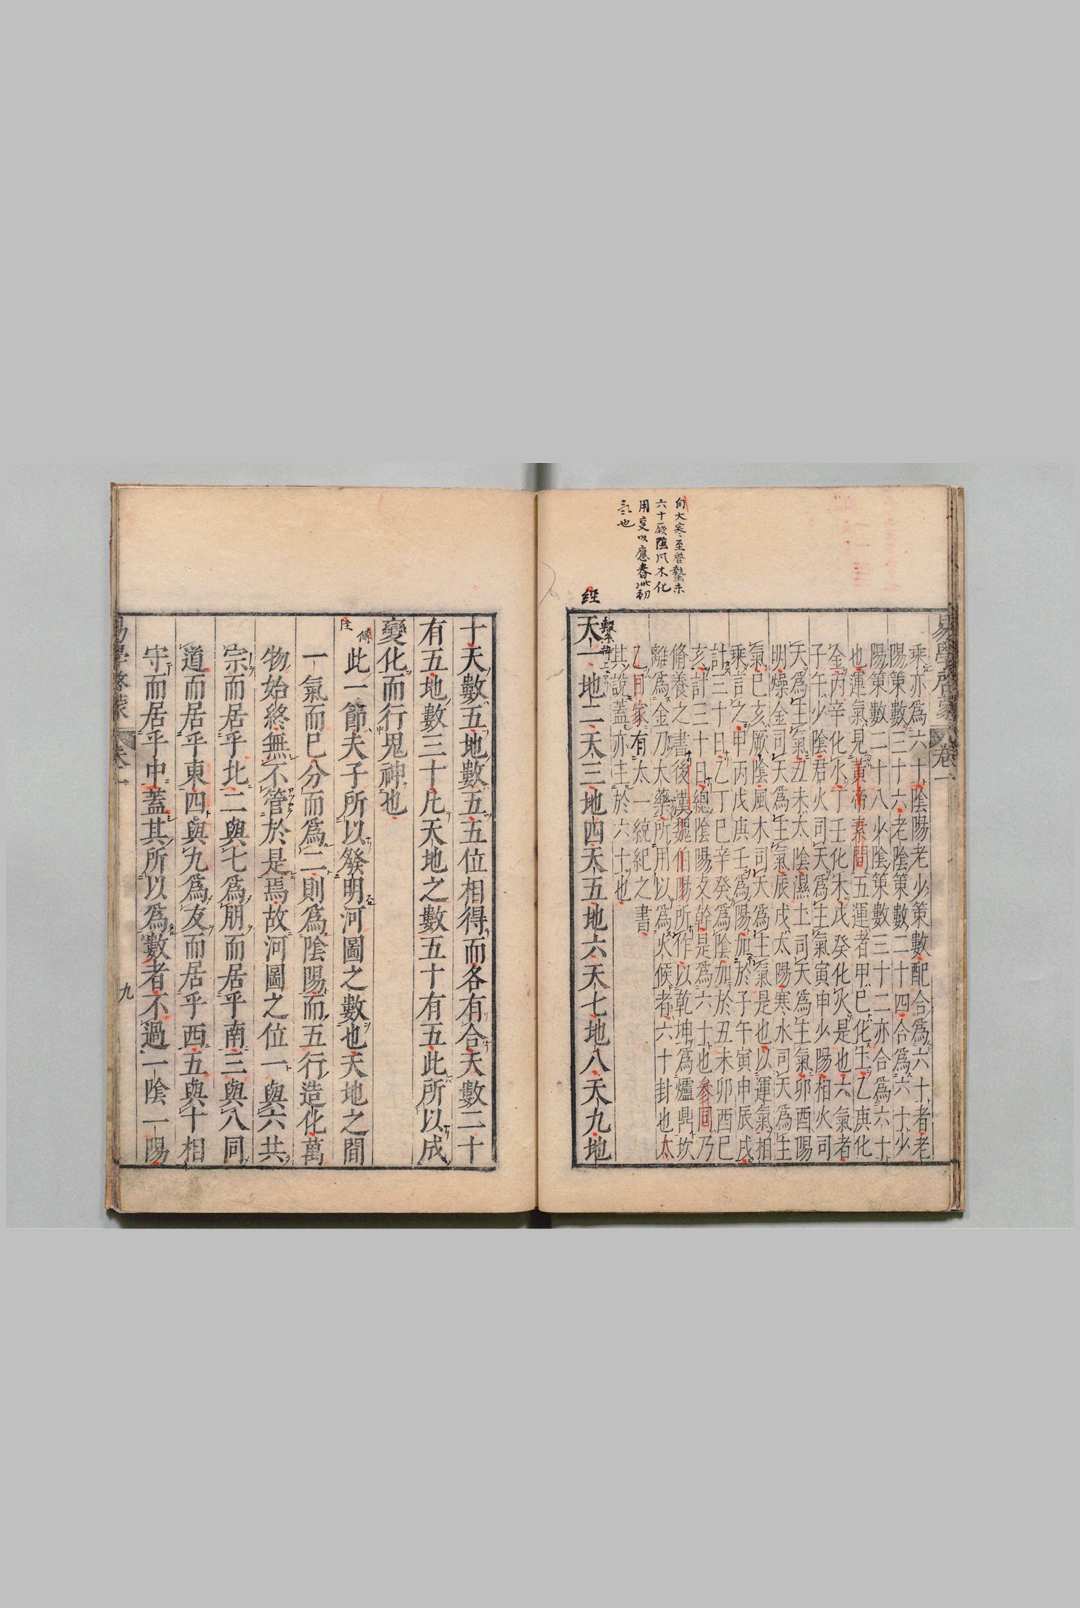 六十
用變以應春
也
經
乘亦爲六十陰陽老少策數配合爲六十者老
陽策數三十六老陰策數二十四合爲六十少
陽策數二十八少陰策數三十二亦合爲六十
也運氣見黃帝素問五運者甲己化土乙庚化
金丙辛化水丁壬化木戊癸化火是也六氣者
子午少陰君火司天爲主氣寅申少陽相火司
天爲主氣丑未太陰濕土司天爲主氣卯酉陽
明燥金司天爲主氣辰戌太陽寒水司天爲主
氣巳亥厥陰風木司天爲主氣是也以運氣相
乘言之甲丙戊庚壬爲陽加於子午寅申辰戌
計三十日乙丁己辛癸爲陰加於丑未卯酉巳
亥計三十日總陰陽支幹是爲六十也參同乃
脩養之書後漢魏伯陽所作以乾坤爲爐鼎坎
離爲金乃大藥所用以爲火候者六十卦也太
乙日家有太一統紀之書
其說蓋亦主於六十也
天一地二天三地四天五地六天七地八天九地
易學啓蒙 卷一
十天數五地數五五位相得而各有合天數二十
有五地數三十凡天地之數五十有五此所以成
變化而行鬼神也
此一節夫子所以發明河圖之數也天地之間
一氣而已分而爲二則爲陰陽而五行造化萬
物始終無不管於是焉故河圖之位一與六共
宗而居乎北二與七爲朋而居乎南三與八同
道而居乎東四與九爲友而居乎西五與十相
守而居乎中蓋其所以爲數者不過一陰一陽
易學啓蒙 卷一 九